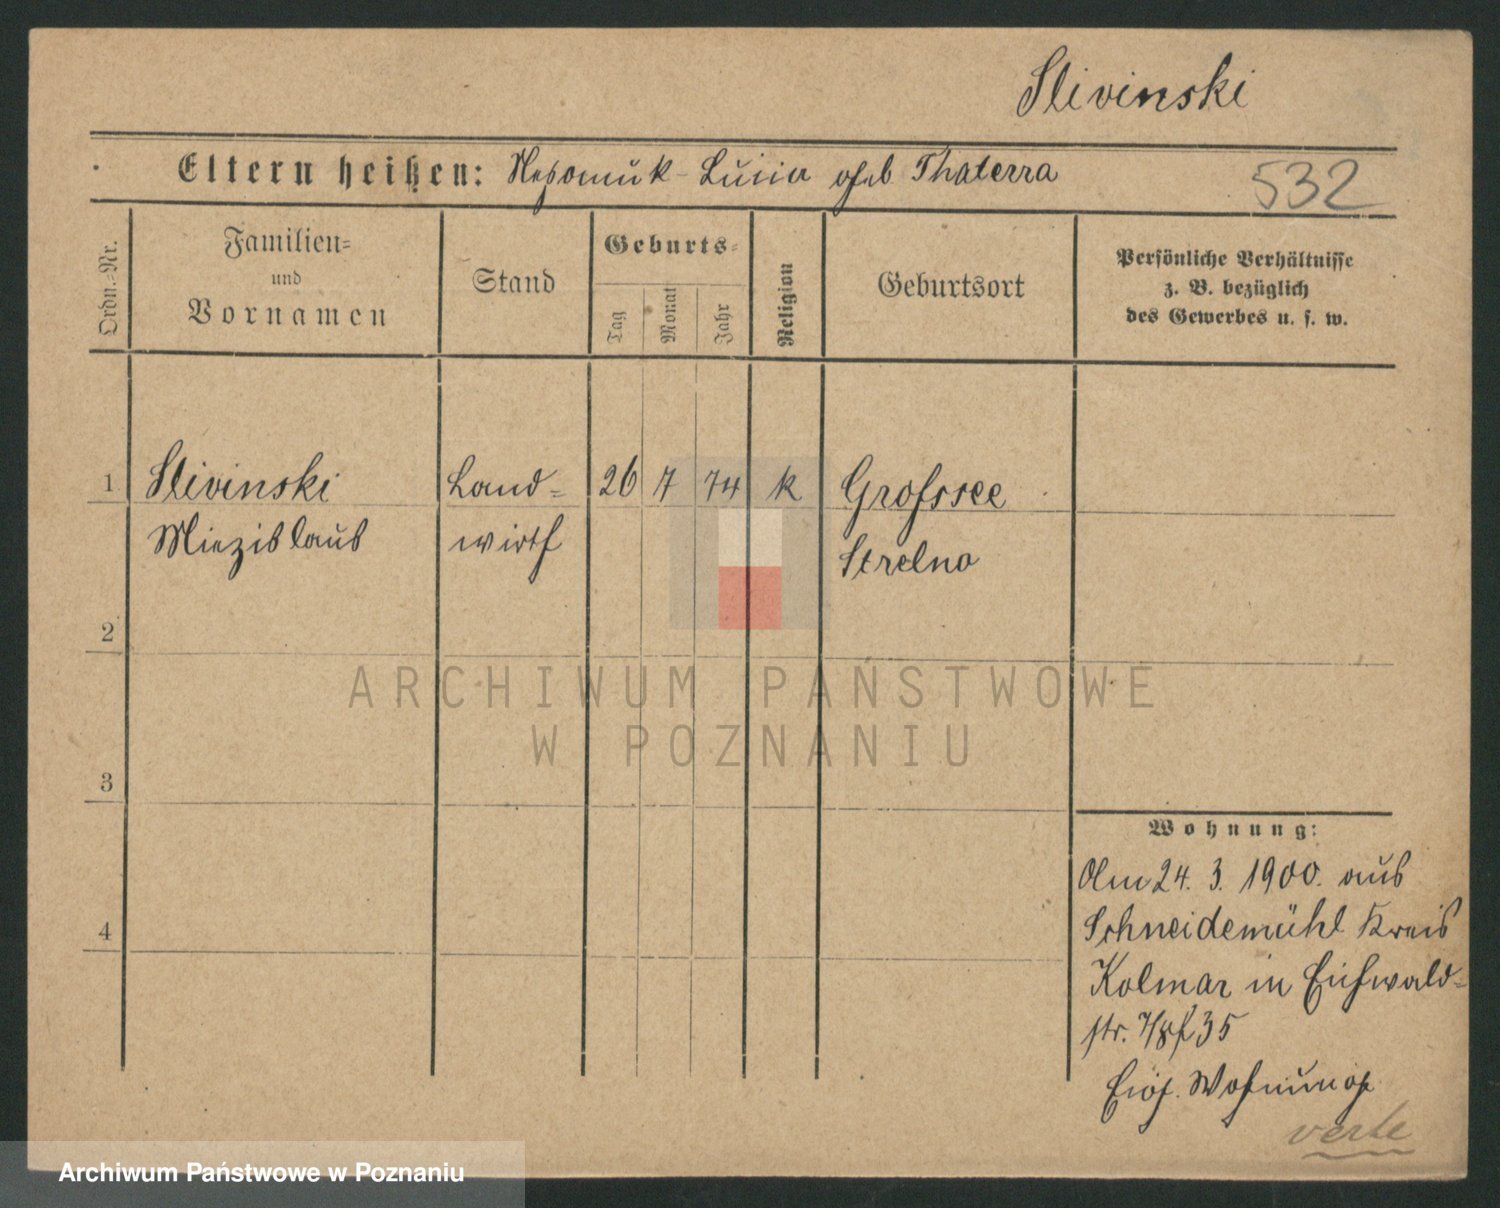 Slivinski
Eltern heißen: Nepomuk - Lucia geb Thaterra
532
Ordn.-Nr.
Familien-
und
Vornamen
Stand
Geburts-
Tag
Monat
Jahr
Religion
Geburtsort
Persönliche Verhältnisse
z. B. bezüglich
des Gewerbes u. s. w.
1 Slivinski Land- 26 7 74 k Grosssee
Miezislaus wirth Strelno
2
ARCHIWUM PAŃSTWOWE
W POZNANIU
3
Wohnung:
Am 24. 3. 1900. aus
4 Schneidemühl Kreis
Kolmar in Eichwald-
str. 35
Eig. Wohnung
verte
Archiwum Państwowe w Poznaniu